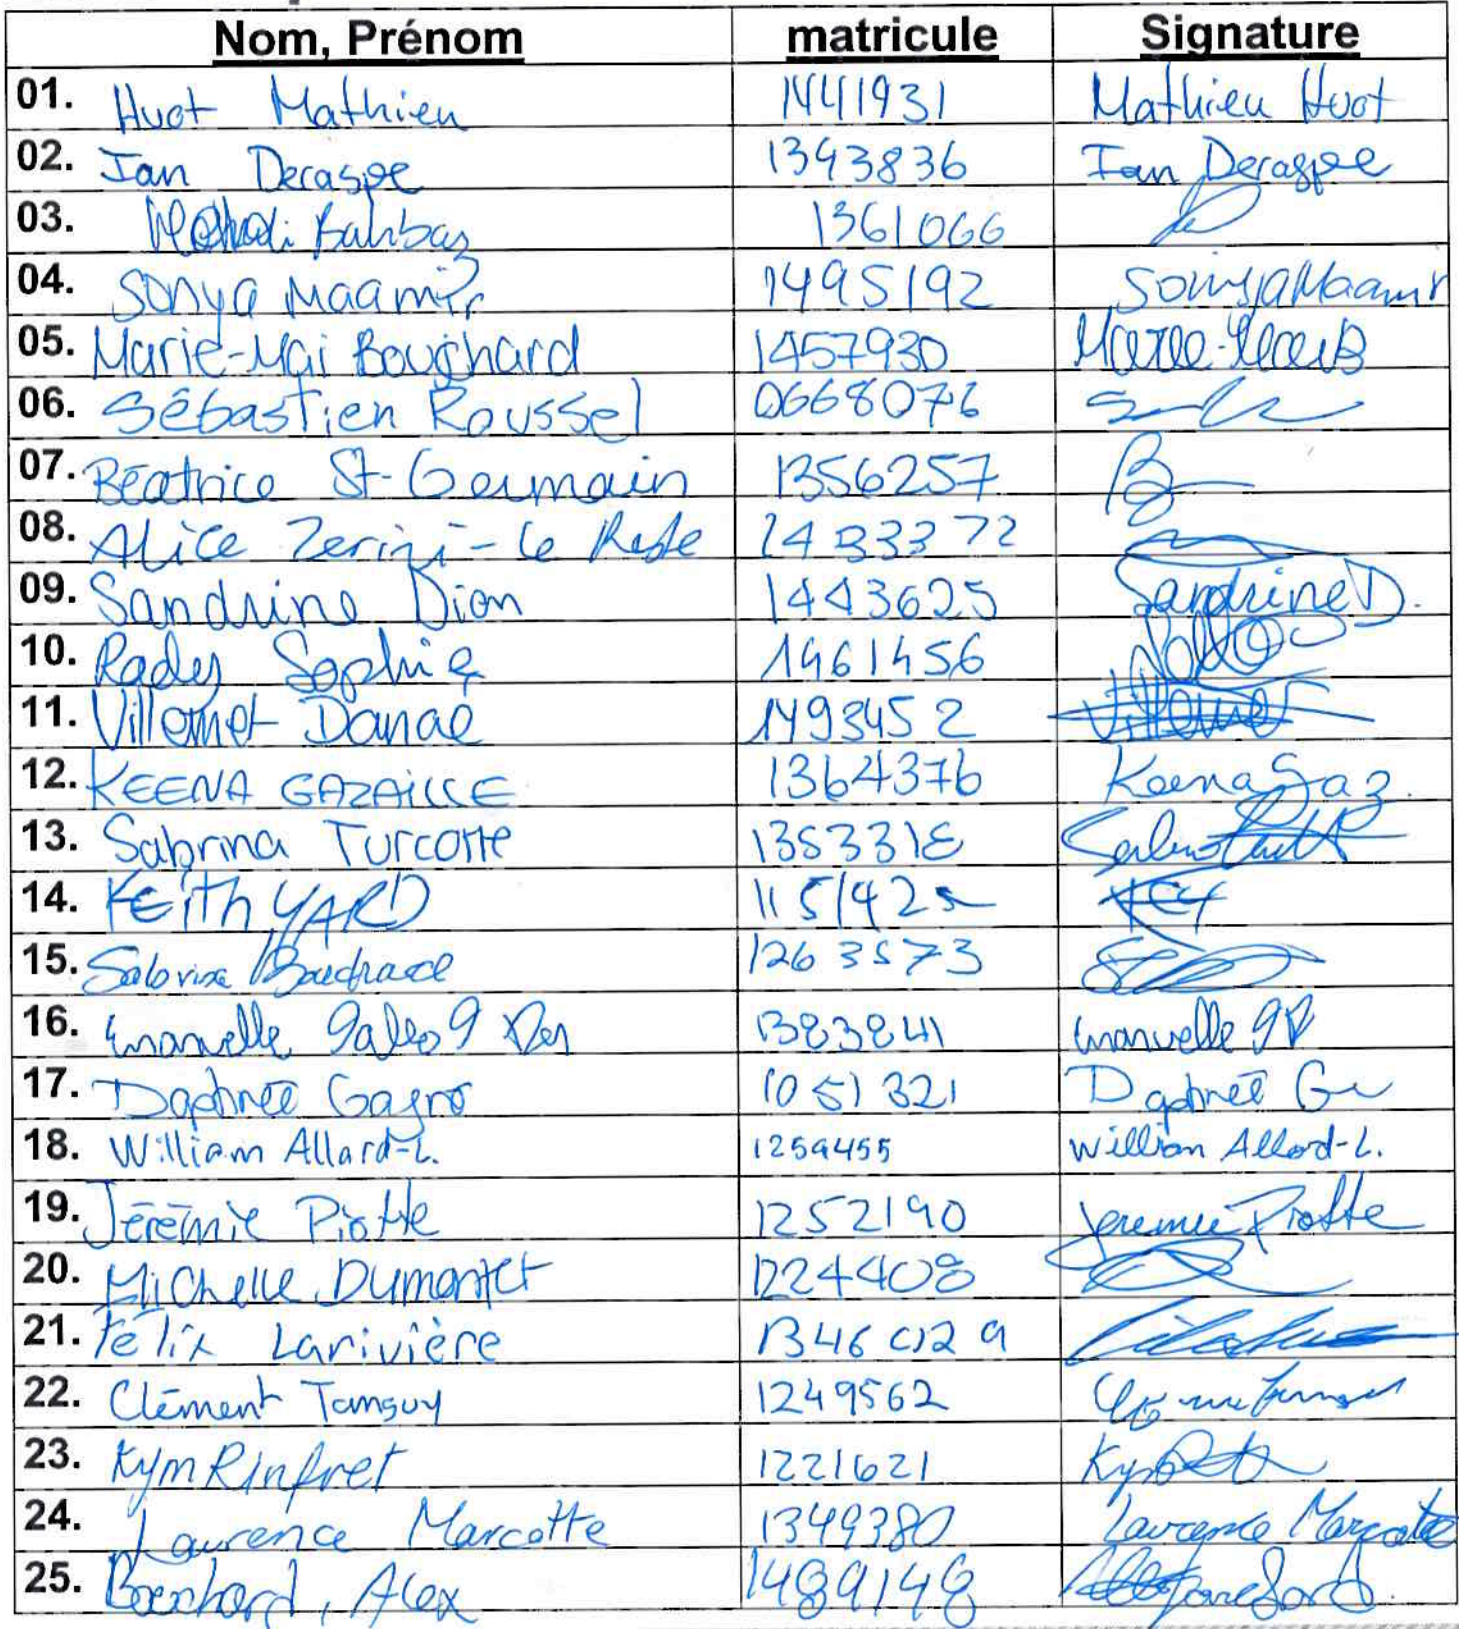 Nom, Prénom matricule Signature
01. Huot Mathieu 1441931 Mathieu Huot
02. Ian Deraspe 1393836 Ian Deraspe
03. Bahbaz 1361066
04. Sonya Maamir 1495192 Sonya Maamir
05. Marie-Mai Bouchard 1457930
06. Sébastien Roussel 0668076
07. Béatrice St-Germain 1356257
08. Alice Zerini-Le Reste
09. Sandrine Dion 1443625 Sandrine D.
10. Rady Sophie 1461456
11. Villemet Danaé 1493452 Villemet
12. KEENA GAZAILLE 1364376 Keena Gaz.
13. Sabrina Turcotte
14. KEITH YARD
15. Sabrina 1263573
16. Emanuelle 1383841 Emanuelle
17. Daphneé Gagno 1051321 Daphneé
18. William Allard-L. 1259455 William Allard-L.
19. Jérémie Piotte 1252190 Jeremie Piotte
20. Michelle Dumontet 1224408
21. Félix Larivière 1346029
22. Clément Tanguy 1249562
23. Kym Rinfret 1221621
24. Laurence Marcotte 1349380 Laurence Marcotte
25. Bouchard, Alex 1489148